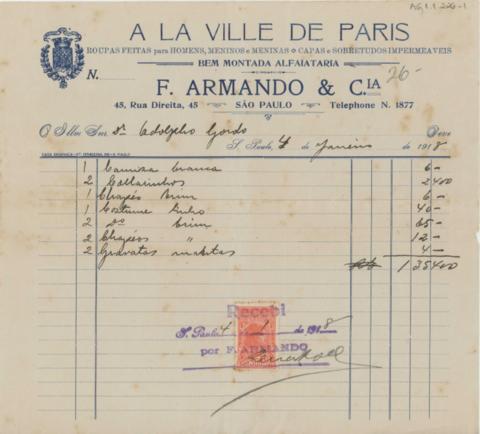 AG.1.1.226-1
A LA VILLE DE PARIS
ROUPAS FEITAS para HOMENS, MENINOS e MENINAS • CAPAS e SOBRETUDOS IMPERMEAVEIS
BEM MONTADA ALFAIATARIA
N. 26-
F. ARMANDO & C.IA
45, Rua Direita, 45 SÃO PAULO Telephone N. 1877
O Illm. Snr. Dr Adolpho Gordo Deve
S. Paulo, 4 de Janeiro de 1918
1 Camisa branca 6-
2 Collarinhos 2400
1 Chapéo brim 6-
1 Costume linho 40-
2 do brim 65-
2 Chapéos " 12-
2 Gravatas 4-
135400
Recebi
S. Paulo 4 de 1 de 1918
por F. ARMANDO